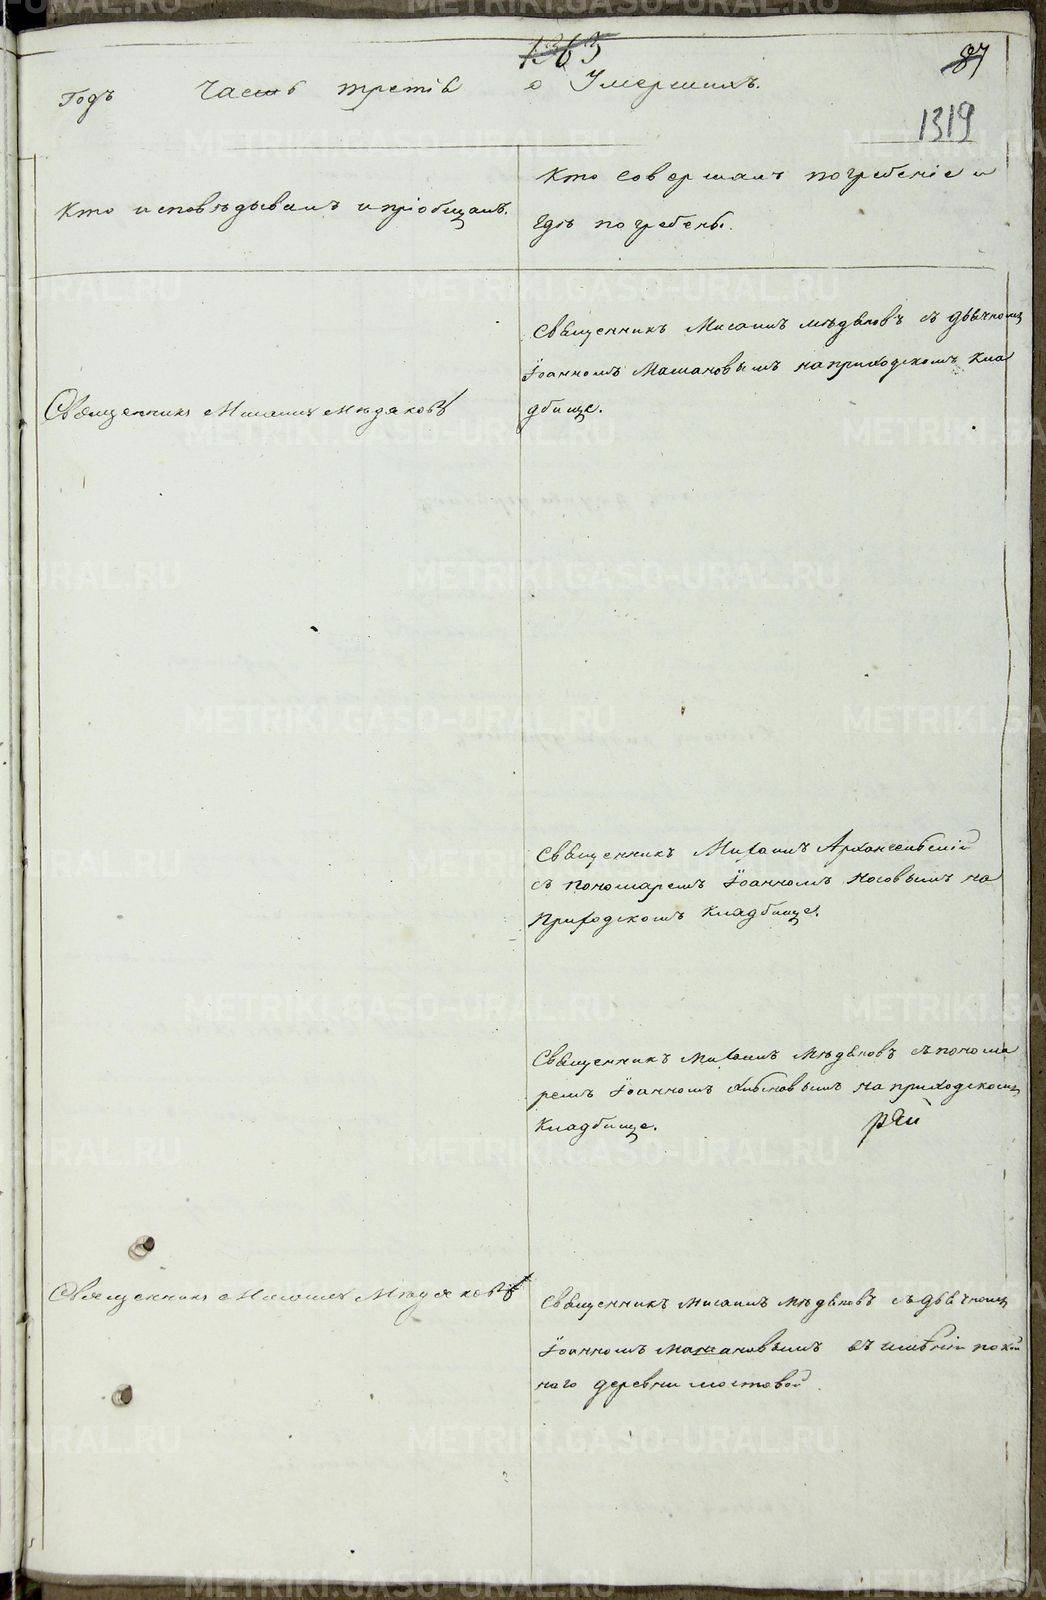 1363
87
Годъ Часть третія о Умершихъ.
1319
Кто исповѣдывалъ и пріобщалъ.
Кто совершалъ погребеніе и
гдѣ погребены.
Священникъ Михаилъ Мѣдяковъ съ дьячкомъ
Іоанномъ Машановымъ на приходскомъ кла
дбище.
Священникъ Михаилъ Мѣдяковъ
Священникъ Михаилъ Архангельскій
съ пономаремъ Іоанномъ Носовымъ на
приходскомъ кладбище.
Священникъ Михаилъ Мѣдяковъ съ понома
ремъ Іоанномъ на приходскомъ
кладбище.
Священникъ Михаилъ Мѣдяковъ
Священникъ Михаилъ Мѣдяковъ съ дьячкомъ
Іоанномъ Машановымъ въ имѣніи покой
наго деревни мостовой.
METRIKI.GASO-URAL.RU